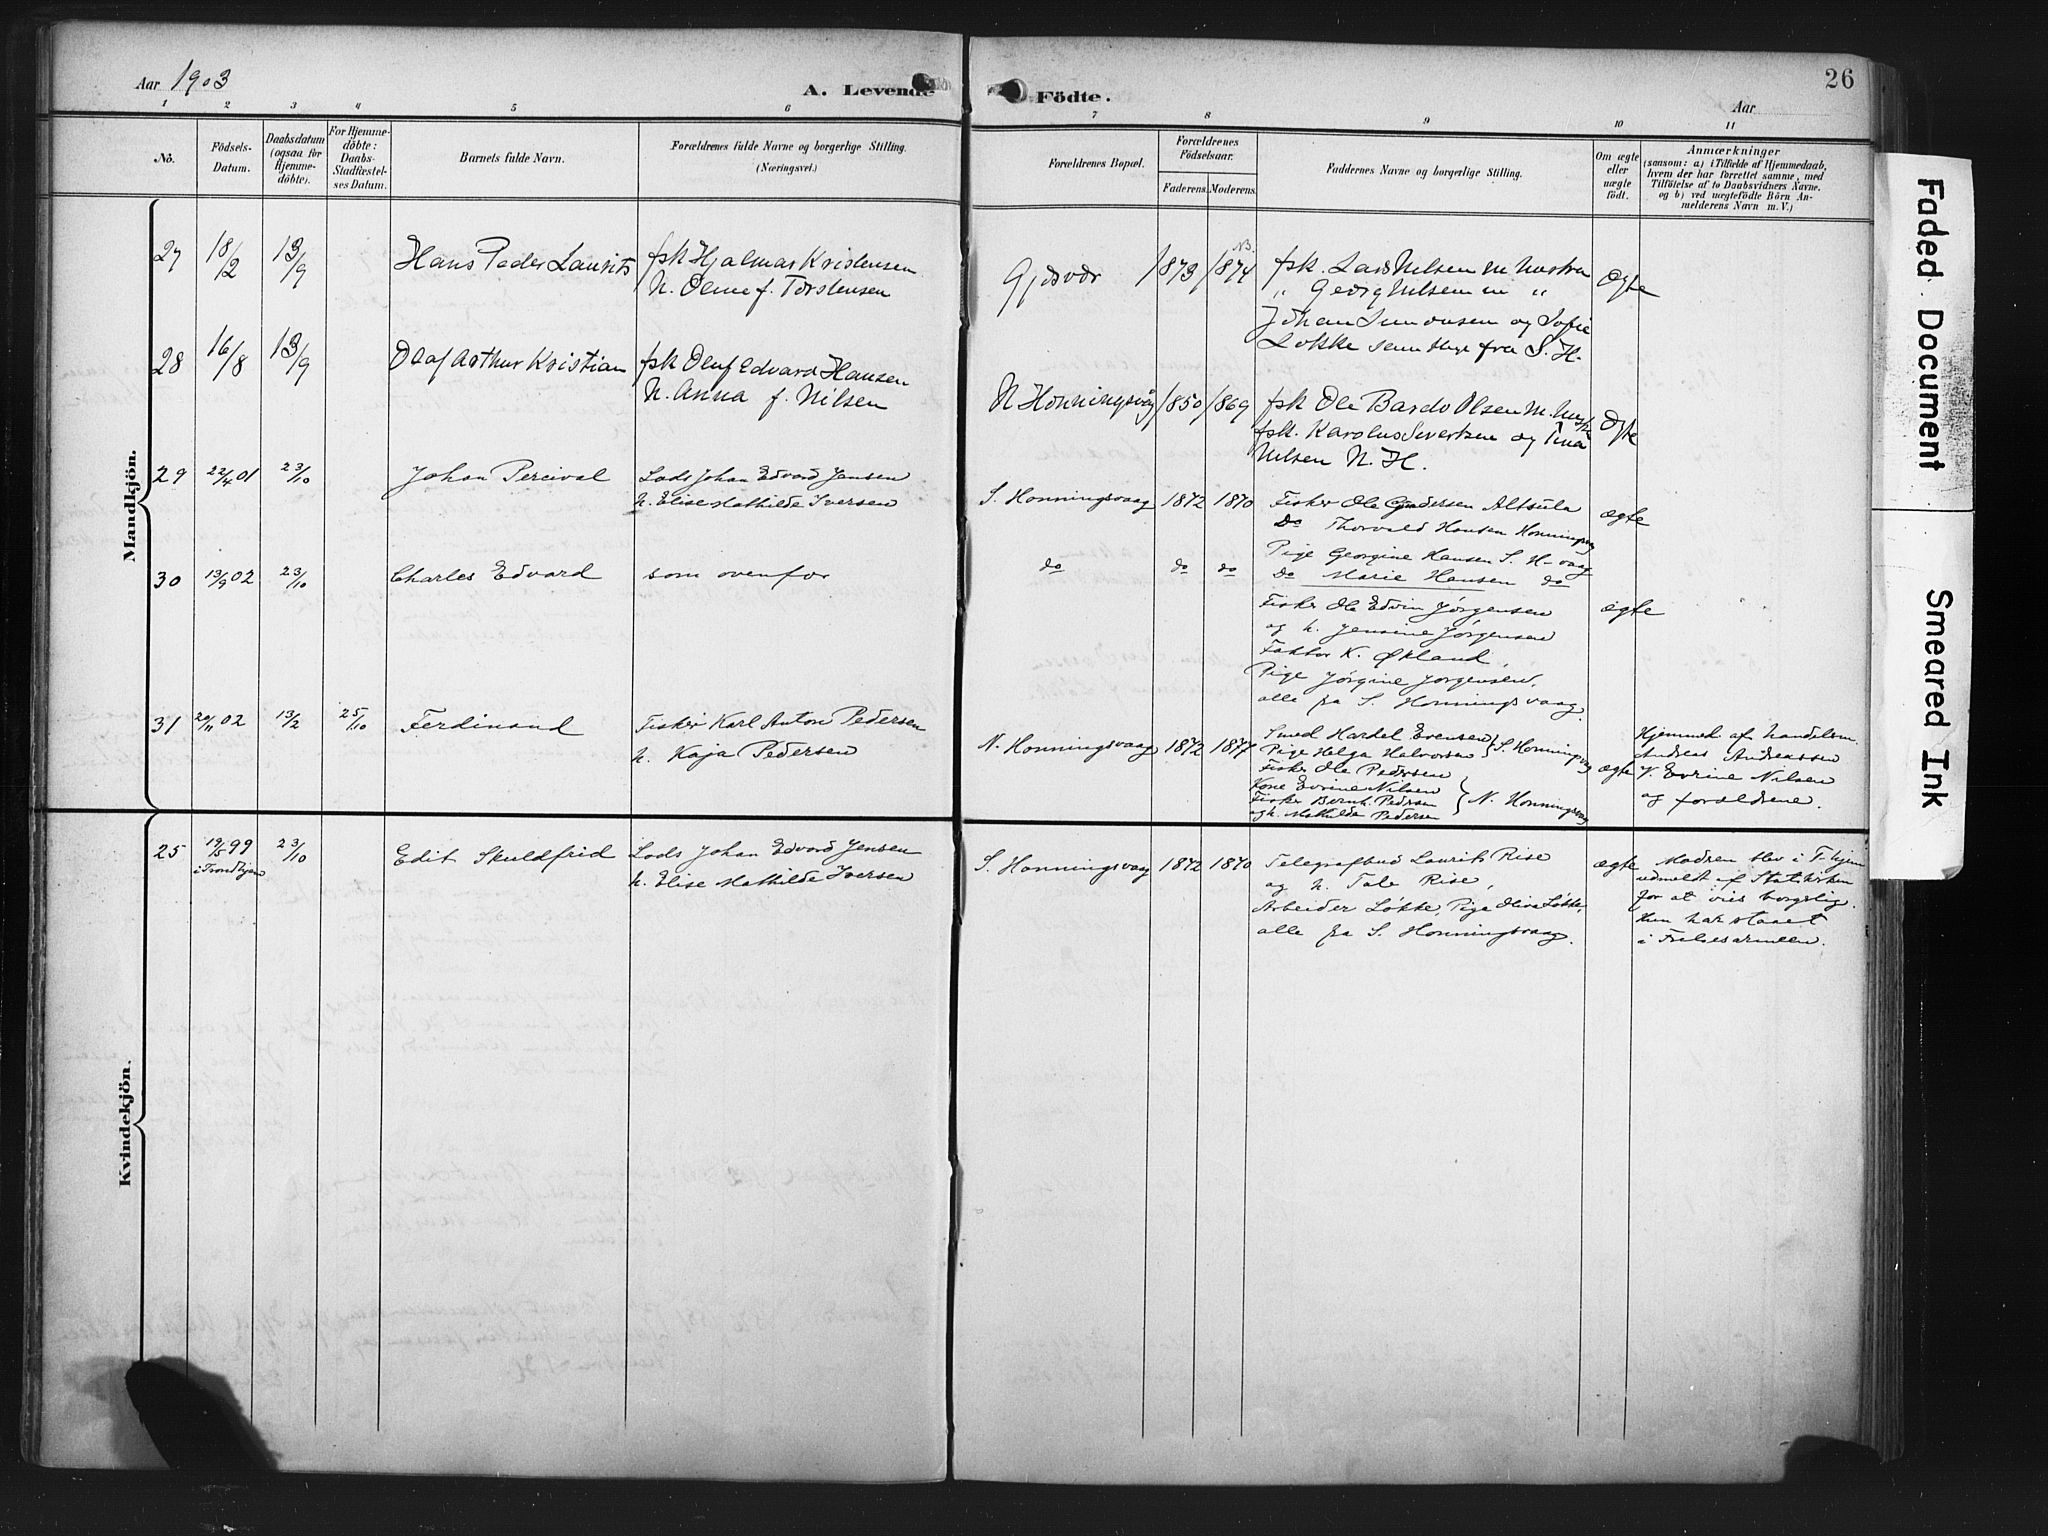 Aar 1903
A. Levende
Födte.
Aar
26
1 2 3 4 5 6 7 8 9 10 11
No.
Födsels-
Datum.
Daabsdatum
(ogsaa for
Hjemme-
döbte).
For Hjemme-
döbte:
Daabs-
Stadfæstel-
ses Datum.
Barnets fulde Navn.
Forældrenes fulde Navne og borgerlige Stilling.
(Næringsvei.)
Forældrenes Bopæl.
Forældrenes
Födselsaar.
Faderens. Moderens.
Faddernes Navne og borgerlige Stilling.
Om ægte
eller
uægte
födt.
Anmærkninger
(saasom: a) i Tilfælde af Hjemmedaab,
hvem der har forrettet samme, med
Tilföielse af to Daabsvidners Navne.
og b) ved uægtefödte Börn An-
melderens Navn m. V.)
Mandkjön.
27 18/2 13/9 Hans Peder Laurits
fsk Hjalmar Kristensen
h. f. Torstensen
Gjesvær 1873 1874
fsk. Lars Nilsen m hustru
" Georg Nilsen m "
Johan Simonsen og Sofie
Løkke samtlige fra S. H.
Ægte
28 16/8 13/9 Olaf Arthur Kristian
fsk Oluf Edvard Hansen
h. Anna f. Nilsen
N Honningsvåg 1850 1869
fsk Ole Bardo Olsen m. hustru
fsk. Karolus Sivertsen og Tina
Nilsen N. H.
Ægte
29 22/4 01 23/10 Johan Percival
Lods Johan Edvard Jensen
h. Elise Mathilde Iversen
S. Honningsvaag 1872 1870
Fisker Ole Altsula
Do Thorvald Hansen Honningsvag
Pige Georgine Hansen S. H-vaag
Do Marie Hansen do
ægte
30 13/9 02 23/10 Charles Edvard
som ovenfor
do do do
Fisker Ole Edvin Jørgensen
og h. Jensine Jørgensen
Faktor K. Økland,
Pige Jørgine Jørgensen,
alle fra S. Honningsvaag.
ægte
31 20/11 02 13/2 25/10 Ferdinand
Fisker Karl Anton Pedersen
h. Kaja Pedersen
N. Honningsvaag 1872 1877
Smed Hartel Evensen
Pige Helga Halvorsen } S. Honningsvag
Fisker Ole Pedersen
Kone Evrine Nilsen
Fisker Bernh. Pedersen
og h. Mathilde Pedersen } N. Honningsvag
ægte
Hjemmed af handelsm.
Andreas Andreassen
V. Evrine Nilsen
og forældrene.
Kvindekjön.
25 19/5 99 23/10 Edit Skuldfrid
i Trondhjem
Lods Johan Edvard Jensen
h. Elise Mathilde Iversen
S. Honningsvaag 1872 1870
Telegrafbud Laurits Rise
og h. Tale Rise,
Arbeider Løkke, Pige Olina Løkke,
alle fra S. Honningsvaag.
ægte
Modren blev i T-hjem
udmeldt af Statskirken
for at vies borgerlig.
Hun har staaet
i Frelsesarmeen.
Faded Document
Smeared Ink